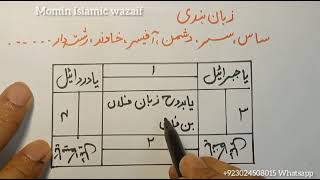 Momin Islamic wazaif
زبان بندی
ساس، سسر، دشمن، آفیسر، خاوند، رشتہ دار.......
یا جبرائیل
۱
یا دردائیل
۳
یا بدوح زبان فلاں
بن فلاں
۲
+923024508015 Whatsapp